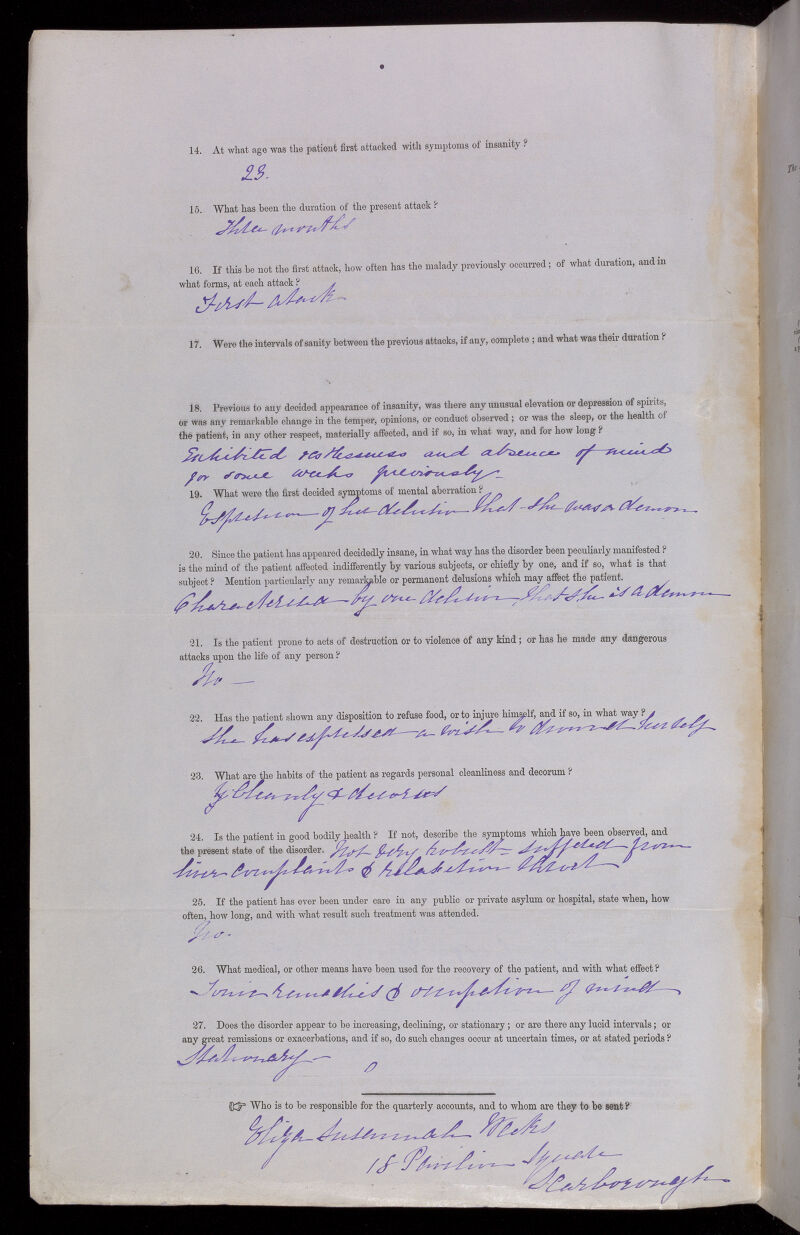 14. At what age was the patient first attacked with symptoms of insanity ?
23.
15. What has been the duration of the present attack ?
Three months
16. If this be not the first attack, how often has the malady previously occurred ; of what duration, and in
what forms, at each attack ?
First attack
17. Were the intervals of sanity between the previous attacks, if any, complete ; and what was their duration ?
18. Previous to any decided appearance of insanity, was there any unusual elevation or depression of spirits,
or was any remarkable change in the temper, opinions, or conduct observed ; or was the sleep, or the health of
the patient, in any other respect, materially affected, and if so, in what way, and for how long ?
Exhibited restlessness and absence of mind
for some weeks previously
19. What were the first decided symptoms of mental aberration ?
Expression of her delusion that she was a demon
20. Since the patient has appeared decidedly insane, in what way has the disorder been peculiarly manifested ?
is the mind of the patient affected indifferently by various subjects, or chiefly by one, and if so, what is that
subject ? Mention particularly any remarkable or permanent delusions which may affect the patient.
Characterised by one delusion that she is a demon
21. Is the patient prone to acts of destruction or to violence of any kind ; or has he made any dangerous
attacks upon the life of any person ?
No —
22. Has the patient shown any disposition to refuse food, or to injure himself, and if so, in what way ?
She has expressed a wish to drown herself
23. What are the habits of the patient as regards personal cleanliness and decorum ?
Cleanly & decorous
24. Is the patient in good bodily health ? If not, describe the symptoms which have been observed, and
the present state of the disorder. Not very robust – suffered from
liver complaints & relaxation throat
25. If the patient has ever been under care in any public or private asylum or hospital, state when, how
often, how long, and with what result such treatment was attended.
No.
26. What medical, or other means have been used for the recovery of the patient, and with what effect ?
Tonic remedies & occupation of mind
27. Does the disorder appear to be increasing, declining, or stationary ; or are there any lucid intervals ; or
any great remissions or exacerbations, and if so, do such changes occur at uncertain times, or at stated periods ?
Stationary –
☞ Who is to be responsible for the quarterly accounts, and to whom are they to be sent ?
Eliza Susannah
18 Pavilion Square
Scarborough